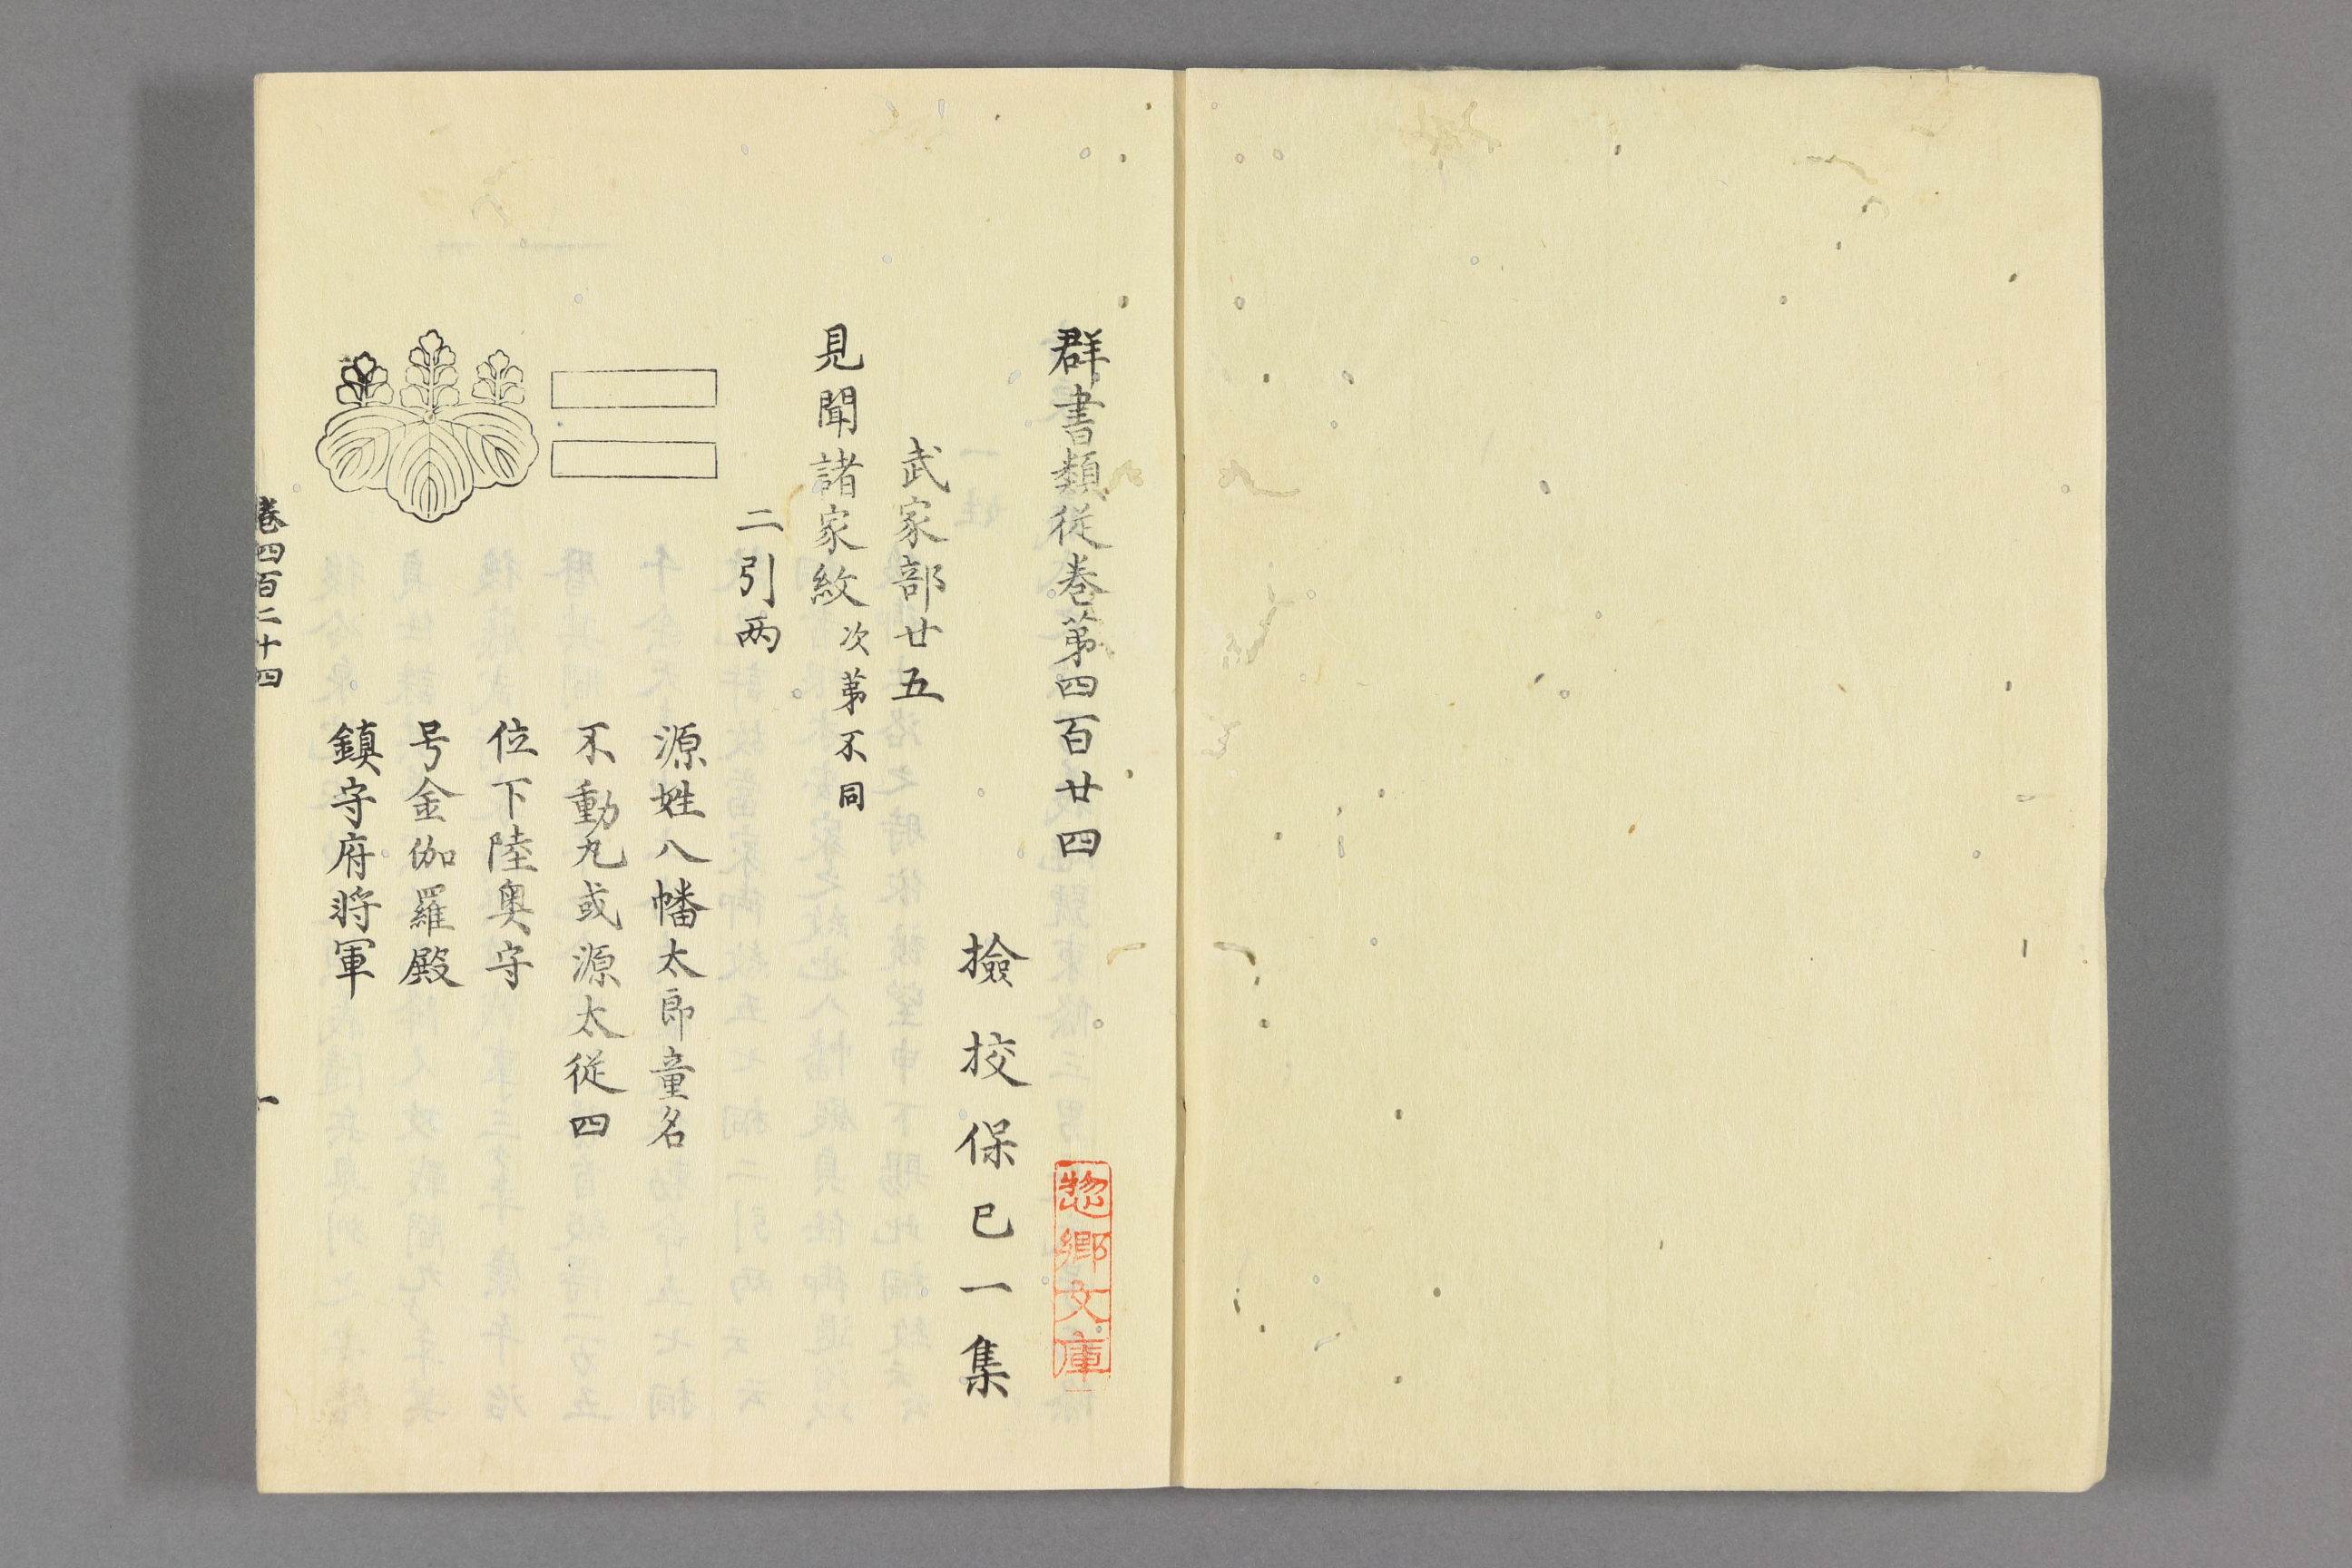 群書類従卷第四百廿四
惣郷文庫
撿挍保己一集
武家部廿五
見聞諸家紋次第不同
二引两
源姓八幡太郎童名
不動丸或源太従四
位下陸奥守
号金伽羅殿
鎮守府将軍
卷四百二十四
一